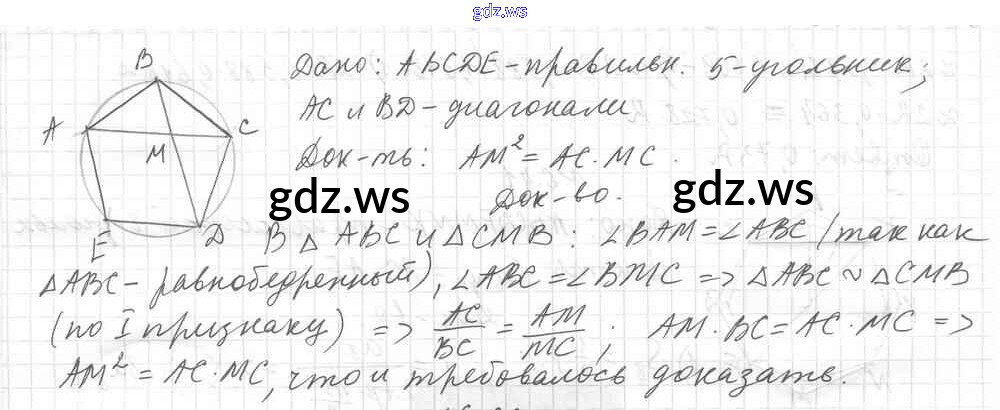 gdz.ws
Дано: ABCDE - правильн. 5-угольник;
AC и BD - диагонали
Док-ть: AM² = AC · MC.
Док-во.
gdz.ws gdz.ws
B
A
C
M
E
D
В △ ABC и △ CMB: ∠BAM = ∠ABC (так как
△ABC - равнобедренный), ∠ABC = ∠BMC => △ABC ~ △CMB
(по I признаку) => AC/BC = AM/MC; AM · BC = AC · MC =>
AM² = AC · MC, что и требовалось доказать.